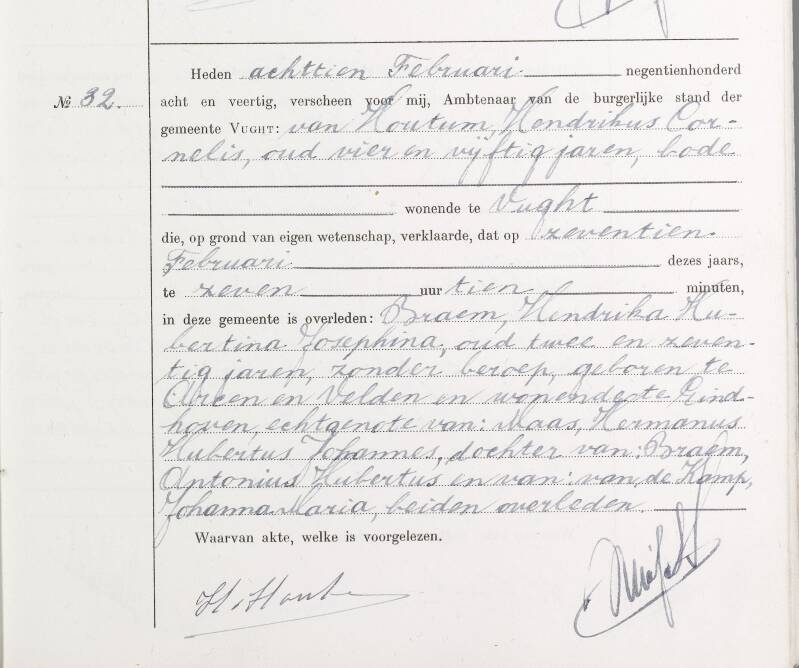 Heden achttien Februari negentienhonderd
No 32.
acht en veertig, verscheen voor mij, Ambtenaar van de burgerlijke stand der
gemeente VUGHT: van Houtum, Hendrikus Cor-
nelis, oud vier en vijftig jaren, bode
wonende te Vught
die, op grond van eigen wetenschap, verklaarde, dat op zeventien
Februari dezes jaars,
te zeven uur tien minuten,
in deze gemeente is overleden: Braem, Hendrika Hu-
bertina Josephina, oud twee en zeven-
tig jaren, zonder beroep, geboren te
Arcen en Velden en wonende te Eind-
hoven, echtgenote van: Maas, Hermanus
Hubertus Johannes, dochter van: Braem,
Antonius Hubertus en van: van de Kamp,
Johanna Maria, beiden overleden.
Waarvan akte, welke is voorgelezen.